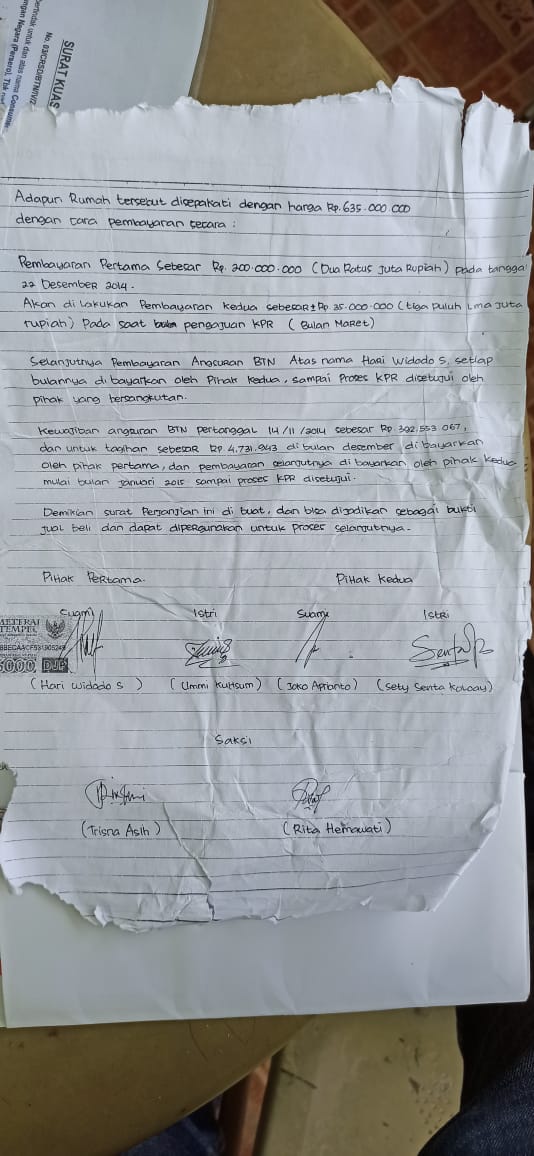 SURAT KUAS
No. 03/CRSD/BTN/V/2
bertindak untuk dan atas nama Consume
ngan Negara (Persero), Tbk
Adapun Rumah tersebut disepakati dengan harga Rp.635.000.000
dengan cara pembayaran secara :
Pembayaran Pertama Sebesar Rp. 200.000.000 (Dua Ratus Juta Rupiah) pada tangga
22 Desember 2014.
Akan di lakukan Pembayaran kedua sebesar ± Rp 35.000.000 (tiga puluh Lima Juta
rupiah) Pada saat pengajuan KPR ( Bulan Maret)
Selanjutnya Pembayaran Angsuran BTN Atas nama Hari Widodo S, setiap
bulannya di bayarkan oleh Pihak Kedua, sampai Proses KPR disetujui oleh
pihak yang bersangkutan.
Kewajiban angsuran BTN pertanggal 14/11/2014 sebesar Rp 302.553 067,
dan untuk tagihan sebesar Rp 4.731.943 di bulan desember di bayarkan
oleh pihak pertama, dan pembayaran selanjutnya di bayarkan oleh pihak kedua
mulai bulan Januari 2015 sampai proses KPR disetujui.
Demikian surat Perjanjian ini di buat, dan bisa dijadikan sebagai bukti
jual beli dan dapat dipergunakan untuk Proses selanjutnya.
Pihak Pertama. Pihak Kedua
Suami Istri Suami Istri
METERAI
TEMPEL
DJP
(Hari Widodo S ) (Ummi Kultsum) (Joko Aprianto) (Sety Senta Koloay)
Saksi
(Trisna Asih) (Rita Hernawati)